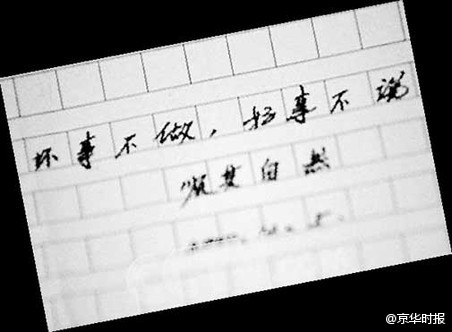 坏事不做，好事不说
顺其自然
@京华时报